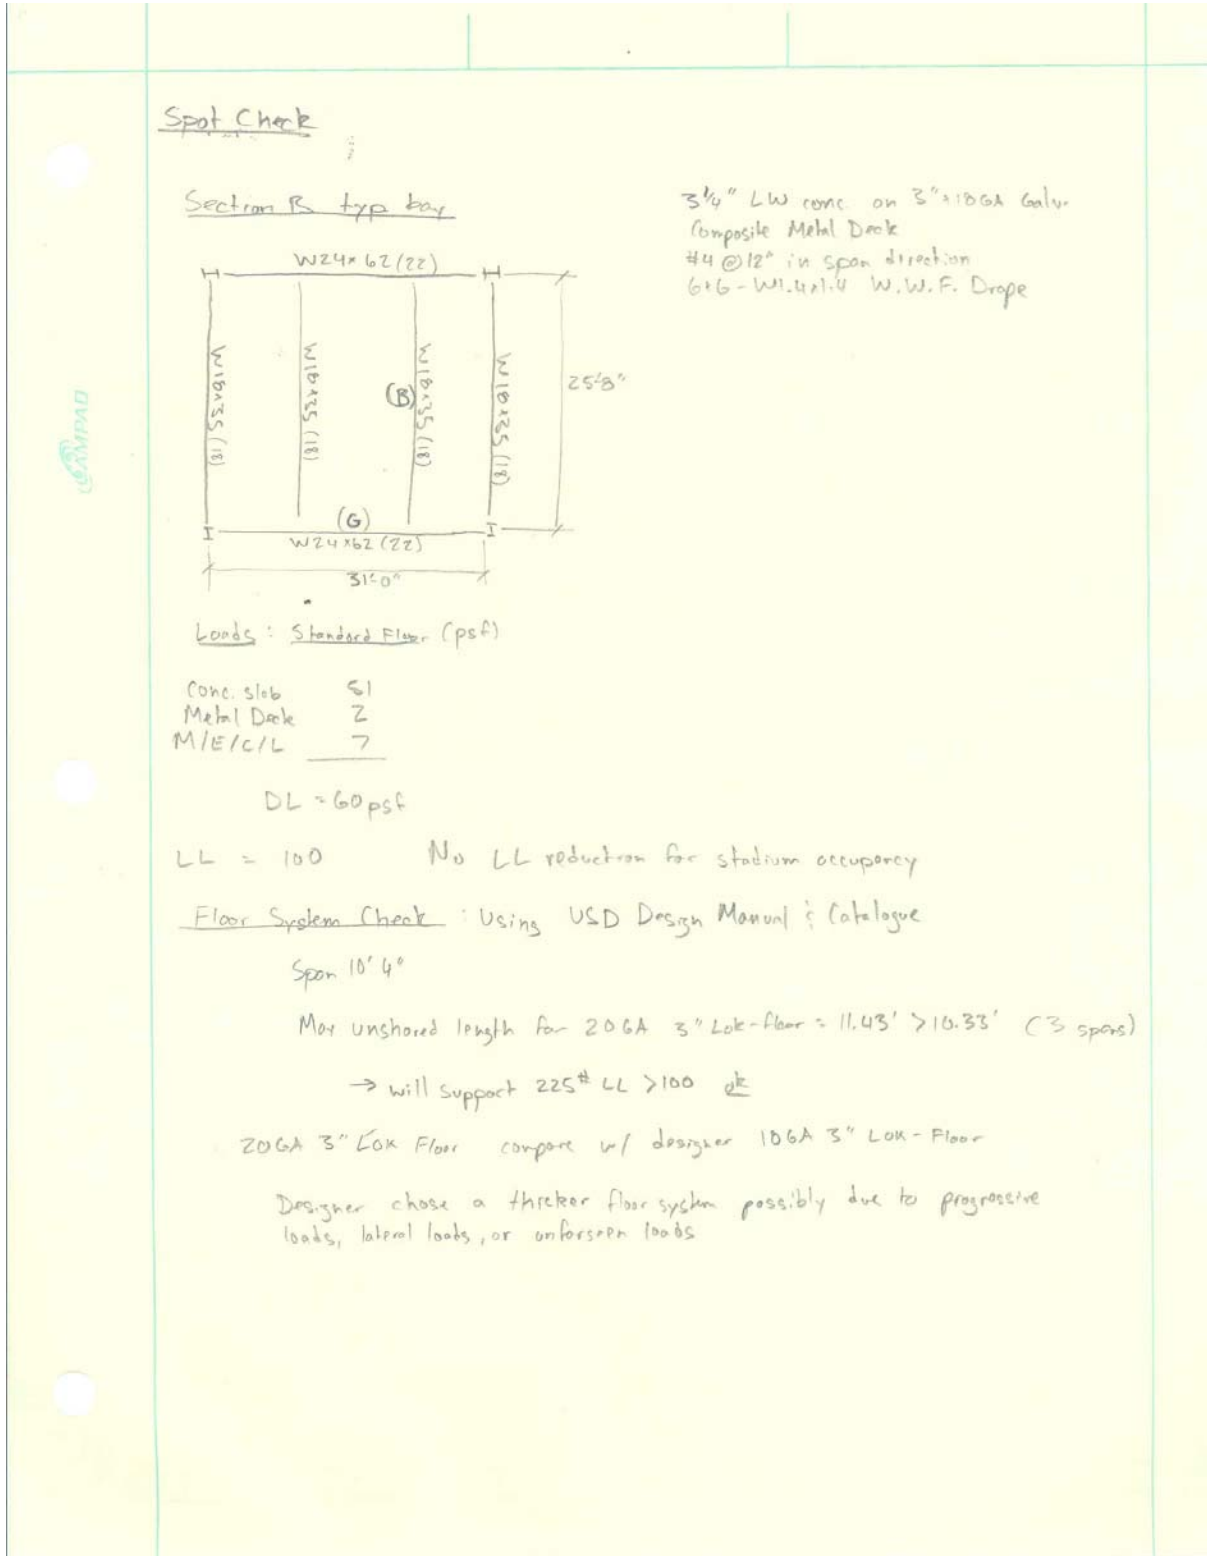 Spot Check
Section B typ bay
3 1/4" LW conc. on 3"x18GA Galv.
Composite Metal Deck
#4 @ 12" in span direction
6x6-W1.4x1.4 W.W.F. Drape
W24x62 (22)
W18x35 (18)
W18x35 (18)
(B)
W18x35 (18)
W18x35 (18)
25'-8"
(G)
W24x62 (22)
31'-0"
Loads: Standard Floor (psf)
Conc. slab 51
Metal Deck 2
M/E/C/L 7
DL = 60 psf
LL = 100 No LL reduction for stadium occupancy
Floor System Check: Using USD Design Manual & Catalogue
Span 10'4"
Max unshored length for 20GA 3" Lok-floor = 11.43' > 10.33' (3 spans)
→ will support 225# LL > 100 ok
20GA 3" Lok Floor compare w/ designer 18GA 3" Lok-Floor
Designer chose a thicker floor system possibly due to progressive
loads, lateral loads, or unforseen loads
CAMPAD